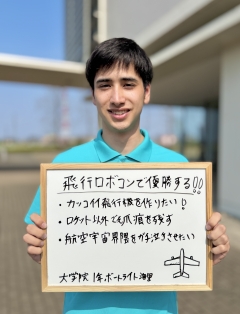 飛行ロボコンで優勝する!!
・カッコイイ飛行機を作りたい!
・ロケット以外でも爪痕を残す
・航空宇宙界隈をガチ泣きさせたい
大学院 1年 ボートライト海里